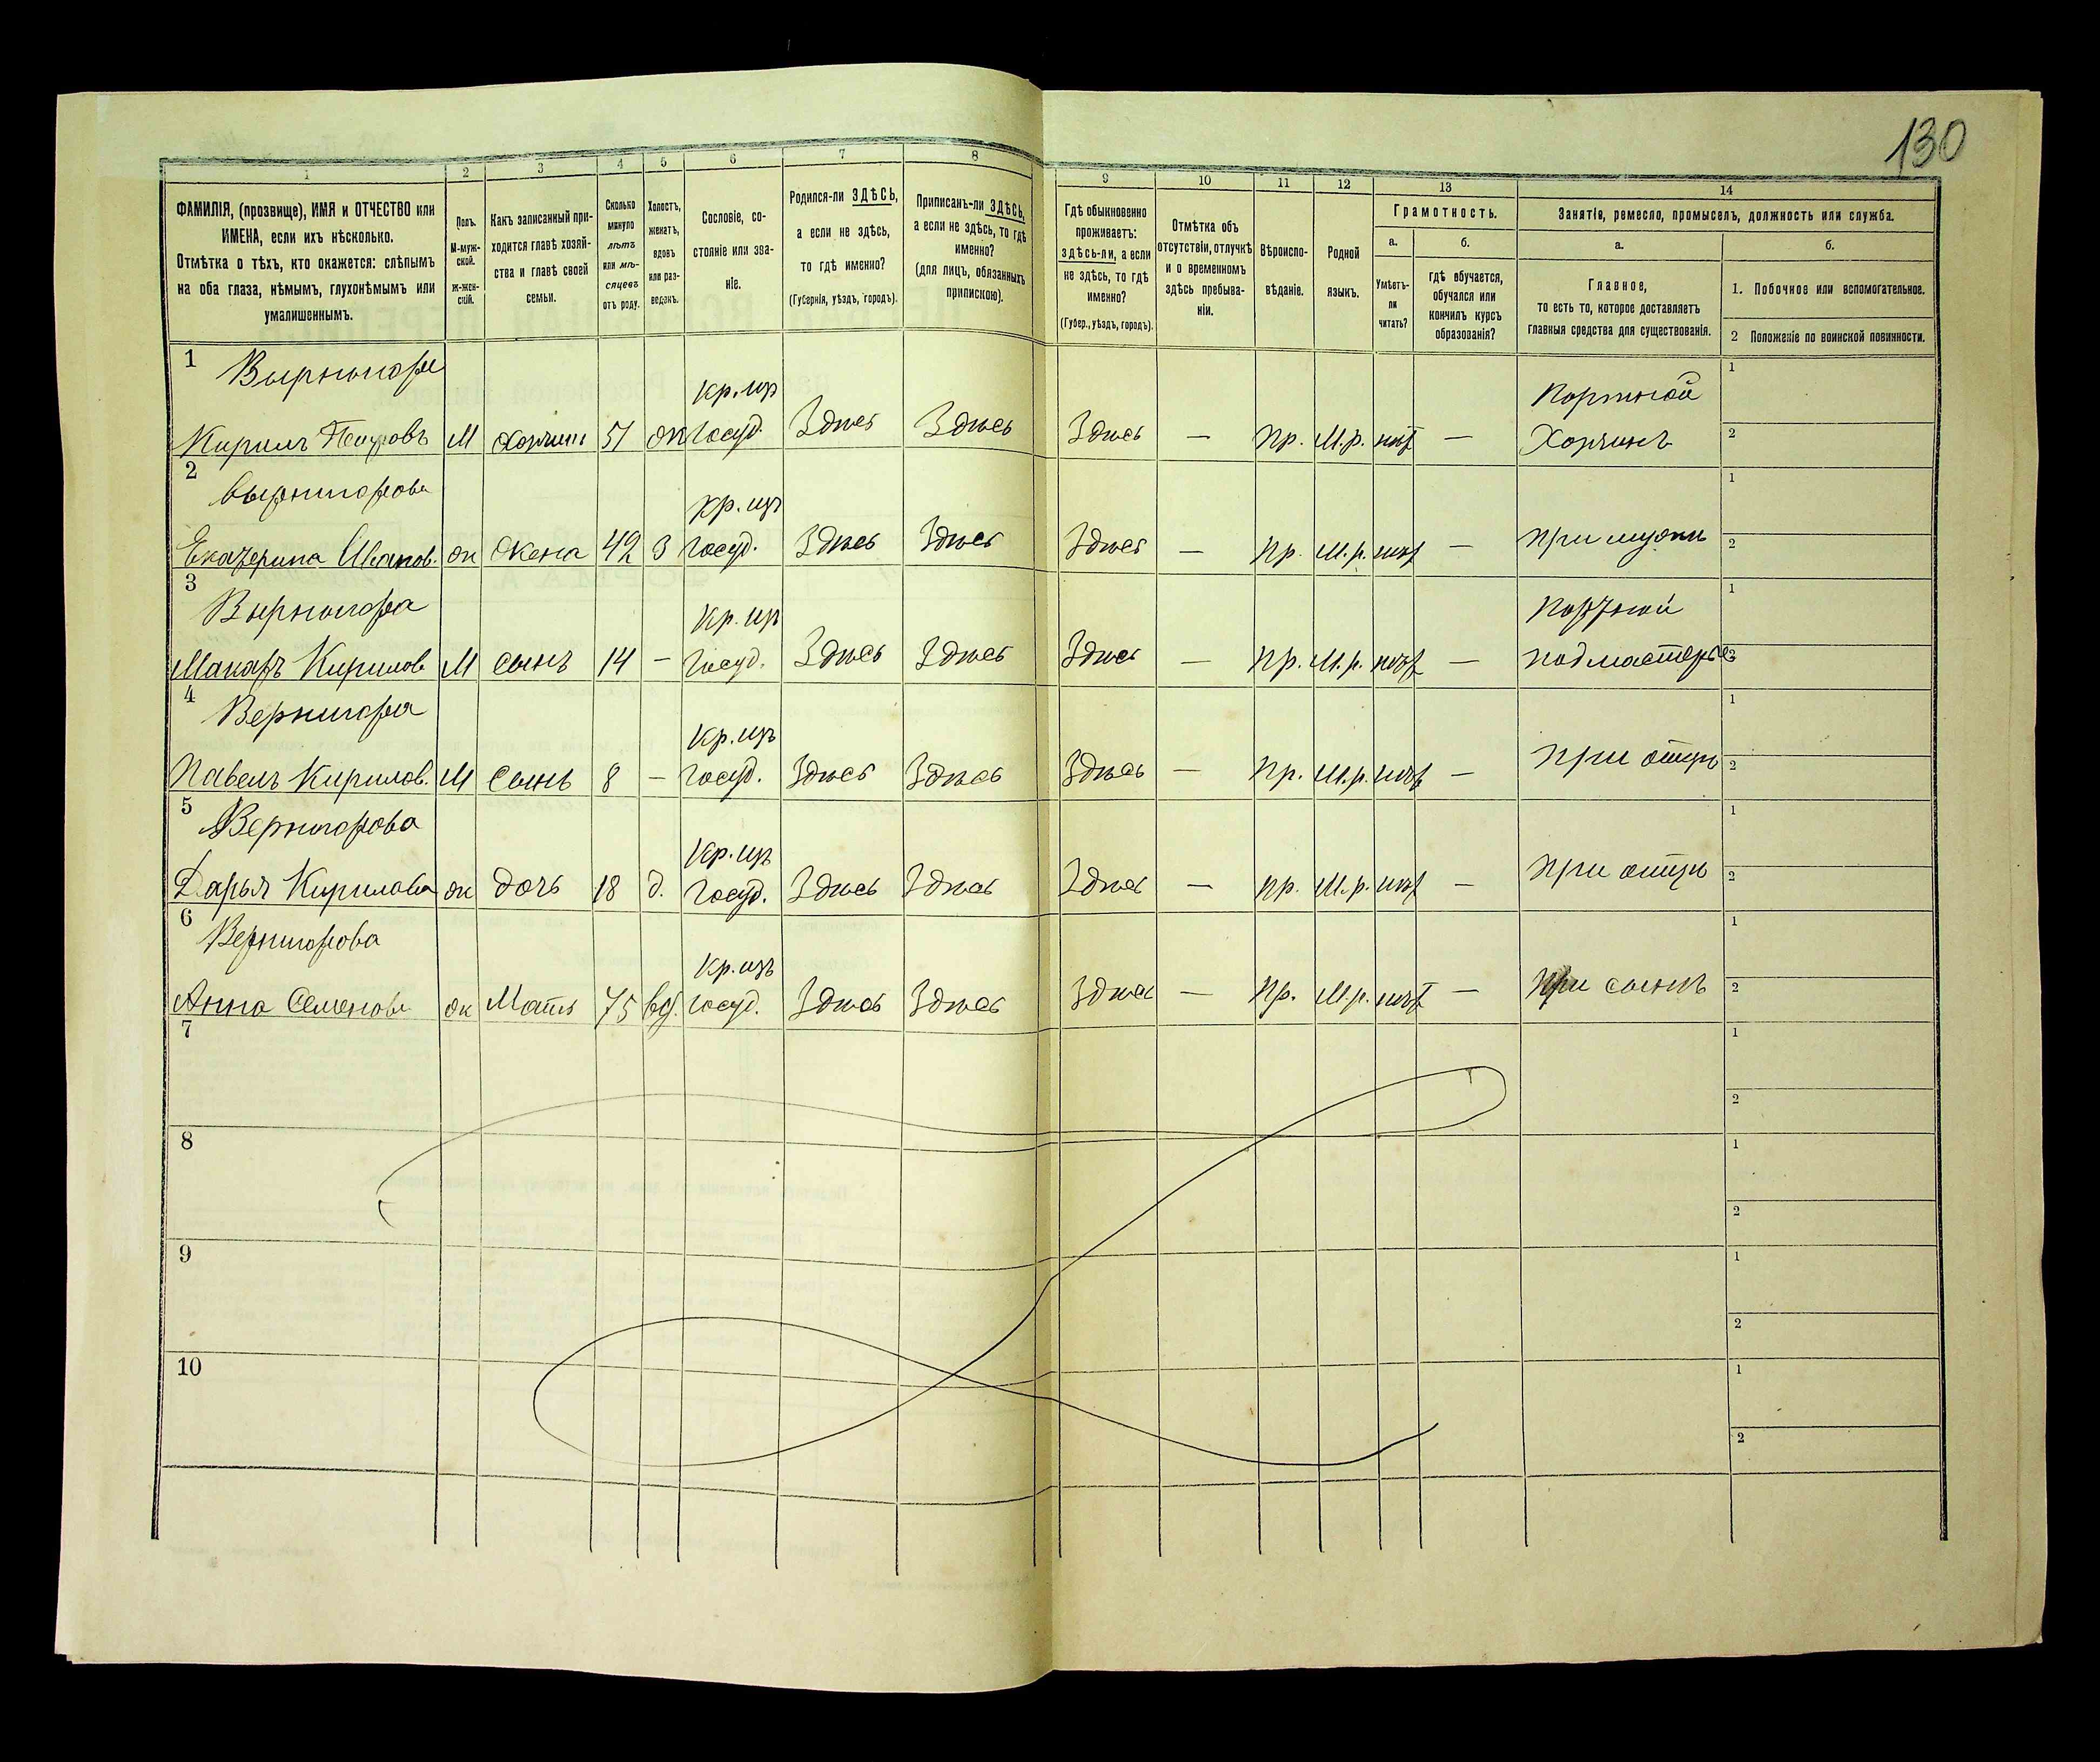 130
1 2 3 4 5 6 7 8 9 10 11 12 13 14
ФАМИЛІЯ, (прозвище), ИМЯ и ОТЧЕСТВО или
ИМЕНА, если ихъ нѣсколько.
Отмѣтка о тѣхъ, кто окажется: слѣпымъ
на оба глаза, нѣмымъ, глухонѣмымъ или
умалишеннымъ.
Полъ.
М-муж-
ской.
Ж-жен-
скій.
Какъ записанный при-
ходится главѣ хозяй-
ства и главѣ своей
семьи.
Сколько
минуло
лѣтъ
или мѣ-
сяцевъ
отъ роду.
Холостъ,
женатъ,
вдовъ
или раз-
веденъ.
Сословіе, со-
стояніе или зва-
ніе.
Родился-ли ЗДѢСЬ,
а если не здѣсь,
то гдѣ именно?
(Губернія, уѣздъ, городъ).
Приписанъ-ли ЗДѢСЬ,
а если не здѣсь, то гдѣ
именно?
(для лицъ, обязанныхъ
припискою).
Гдѣ обыкновенно
проживаетъ:
здѣсь-ли, а если
не здѣсь, то гдѣ
именно?
(Губер., уѣздъ, городъ).
Отмѣтка объ
отсутствіи, отлучкѣ
и о временномъ
здѣсь пребыва-
ніи.
Вѣроиспо-
вѣданіе.
Родной
языкъ.
Грамотность.
а.
Умѣетъ-
ли
читать?
б.
гдѣ обучается,
обучался или
кончилъ курсъ
образованія?
Занятія, ремесло, промыселъ, должность или служба.
а.
Главное,
то есть то, которое доставляетъ
главныя средства для существованія.
б.
1. Побочное или вспомогательное.
2 Положеніе по воинской повинности.
1 Вырнигора кр. изъ Портной 1
Кирилъ Петровъ М Хозяинъ 51 ж Госуд. Здѣсь Здѣсь Здѣсь — Пр. М.р. нѣт — Хозяинъ 2
2 Вырнигорова кр. изъ 1
Екатерина Иванов. ж Жена 42 З Госуд. Здѣсь Здѣсь Здѣсь — Пр. М.р. нѣт — При мужѣ 2
3 Вырнигора Кр. изъ Портной 1
Макаръ Кирилов М сынъ 14 — Госуд. Здѣсь Здѣсь Здѣсь — Пр. М.р. нѣт — подмастерье 2
4 Вернигора Кр. изъ 1
Павелъ Кирилов. М Сынъ 8 — Госуд. Здѣсь Здѣсь Здѣсь — Пр. М.р. нѣт — При отцѣ 2
5 Вернигорова Кр. изъ 1
Дарья Кирилова ж дочь 18 д. Госуд. Здѣсь Здѣсь Здѣсь — Пр. М.р. нѣт — При отцѣ 2
6 Вернигорова Кр. изъ 1
Анна Семенова ж Мать 75 вд. Госуд. Здѣсь Здѣсь Здѣсь — Пр. М.р. нѣт — При сынѣ 2
7 1
2
8 1
2
9 1
2
10 1
2